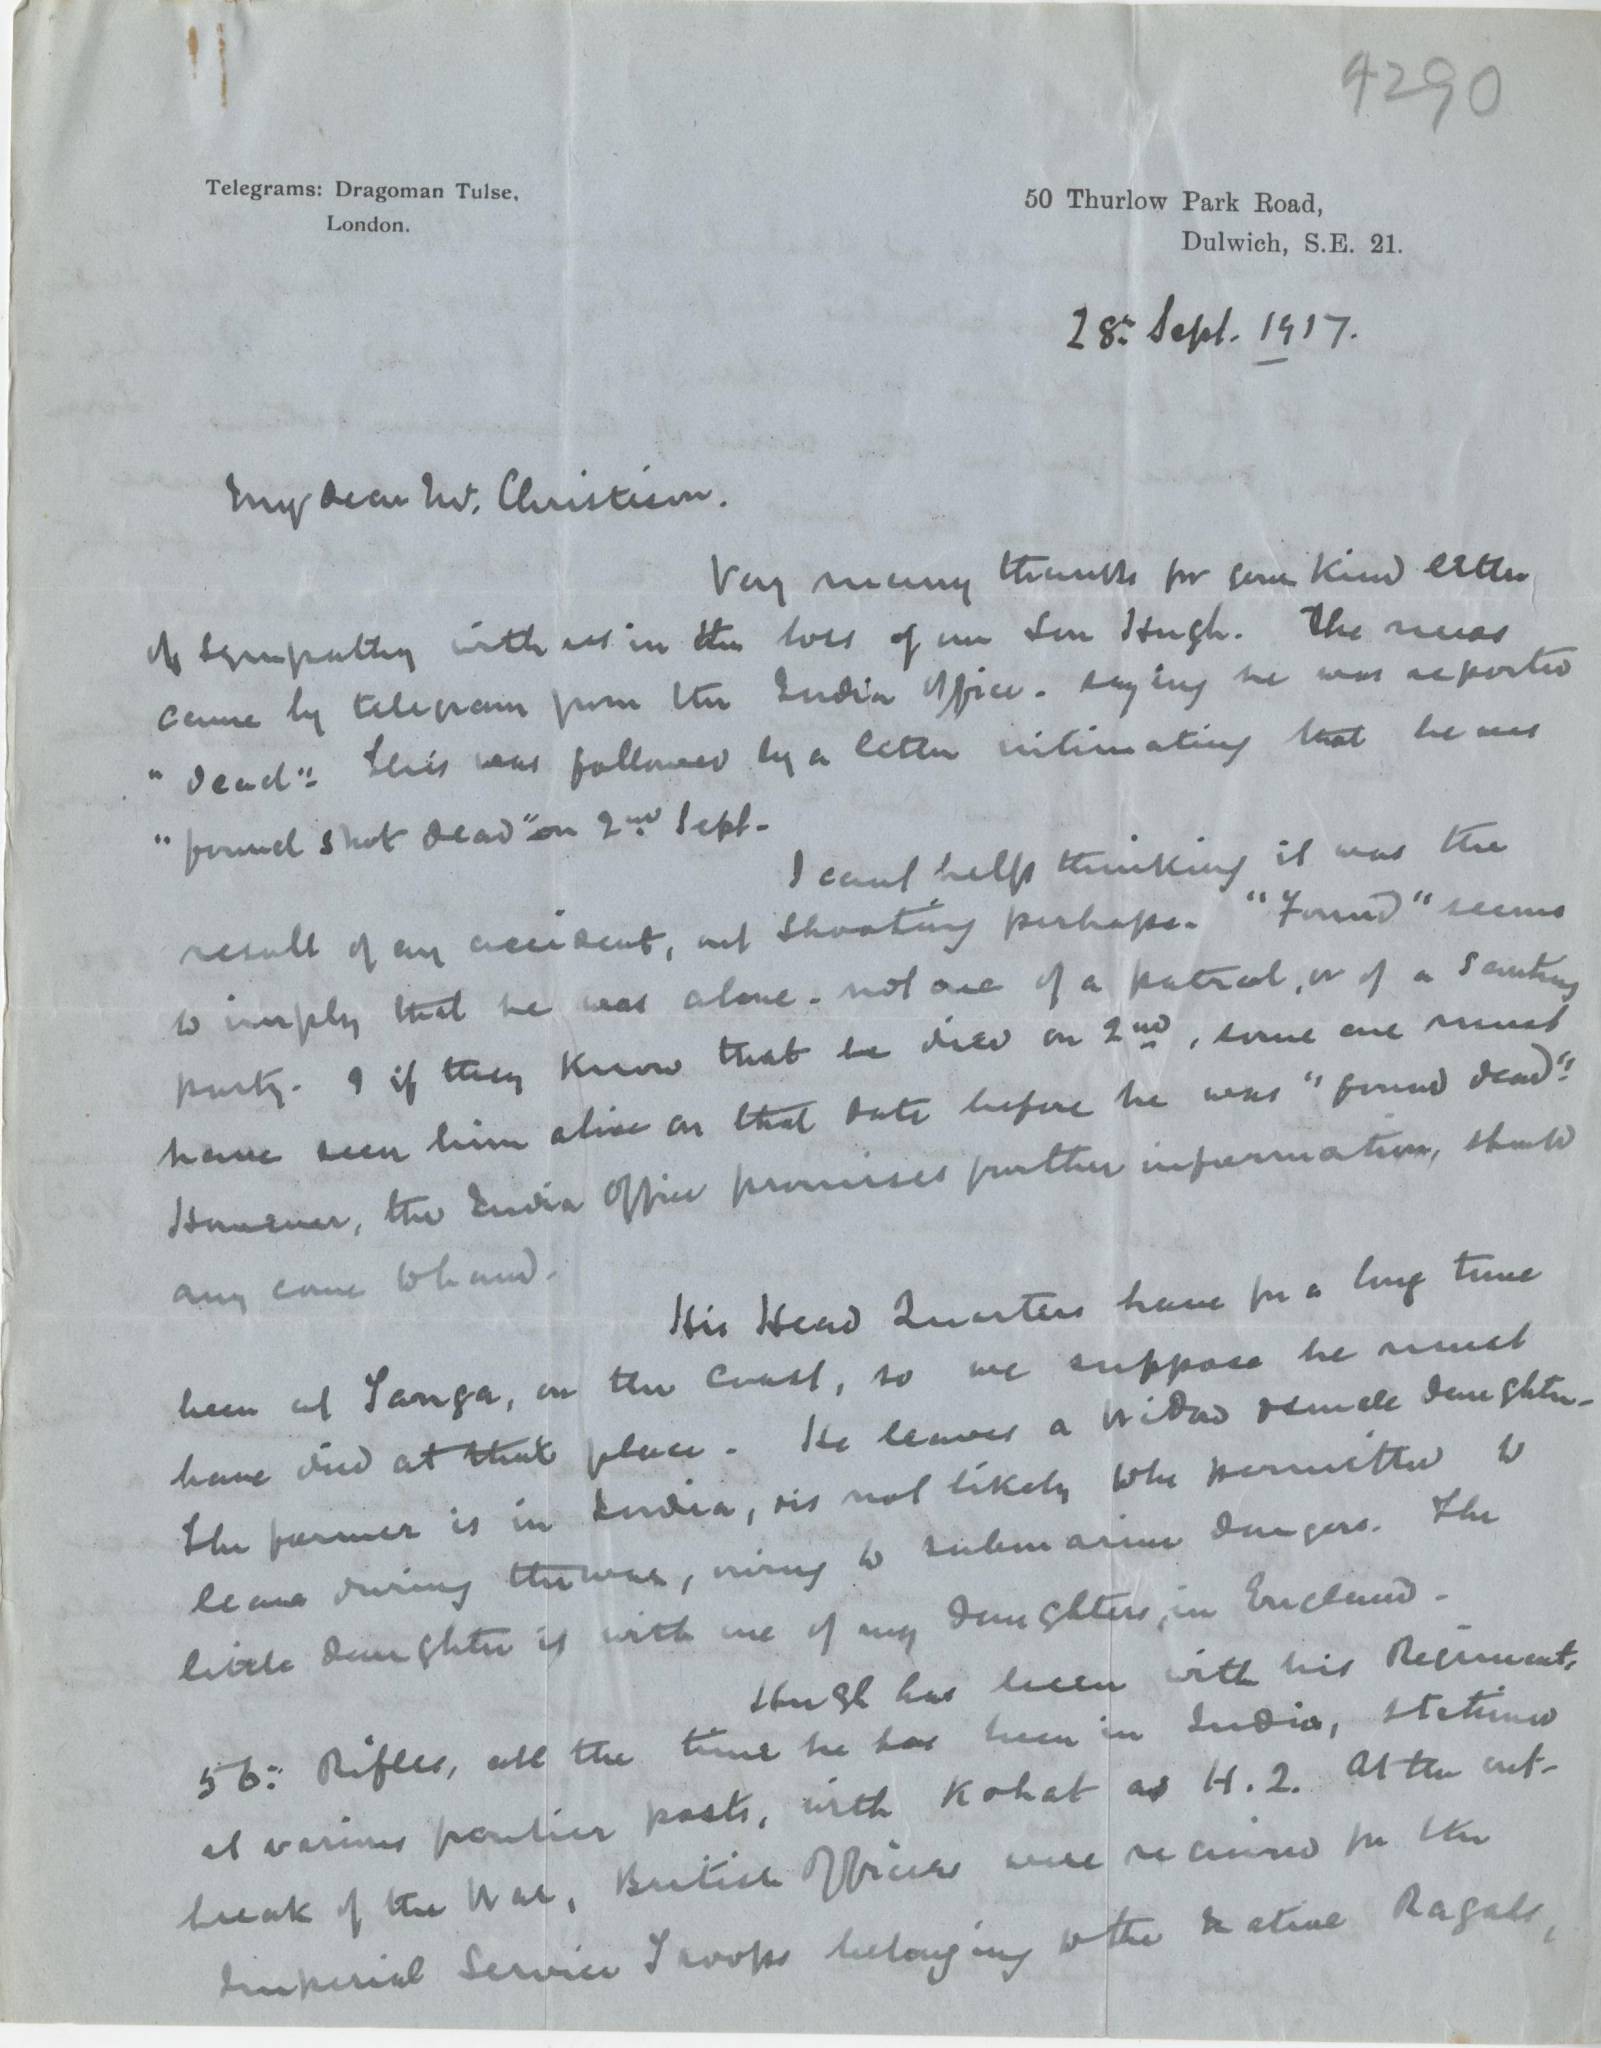 4290
Telegrams: Dragoman Tulse,
London.
50 Thurlow Park Road,
Dulwich, S.E. 21.
28th Sept. 1917.
My dear Mr. Christison.
Very many thanks for your kind letter
of sympathy with us in the loss of our son Hugh. The news
came by telegram from the India Office - saying he was reported
"dead". This was followed by a letter intimating that he was
"found shot dead" on 2nd Sept.
I cant help thinking it was the
result of an accident, out shooting perhaps. "Found" seems
to imply that he was alone - not one of a patrol, or of a scouting
party. & if they know that he died on 2nd, some one must
have seen him alive on that date before he was "found dead".
However, the India Office promises further information, should
any come to hand.
His Head Quarters have for a long time
been at Tanga, on the coast, so we suppose he must
have died at that place. He leaves a widow & single daughter.
The former is in India, & is not likely to be permitted to
leave during the war, owing to submarine dangers. The
little daughter is with one of my daughters, in England.
Hugh has been with his Regiment,
56th Rifles, all the time he has been in India, stationed
at various frontier posts, with Kohat as H.Q. At the out-
break of the War, British Officers were required for the
Imperial Service Troops belonging to the Native Rajahs,